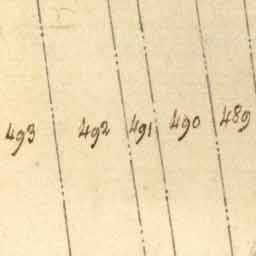 493 492 491 490 489